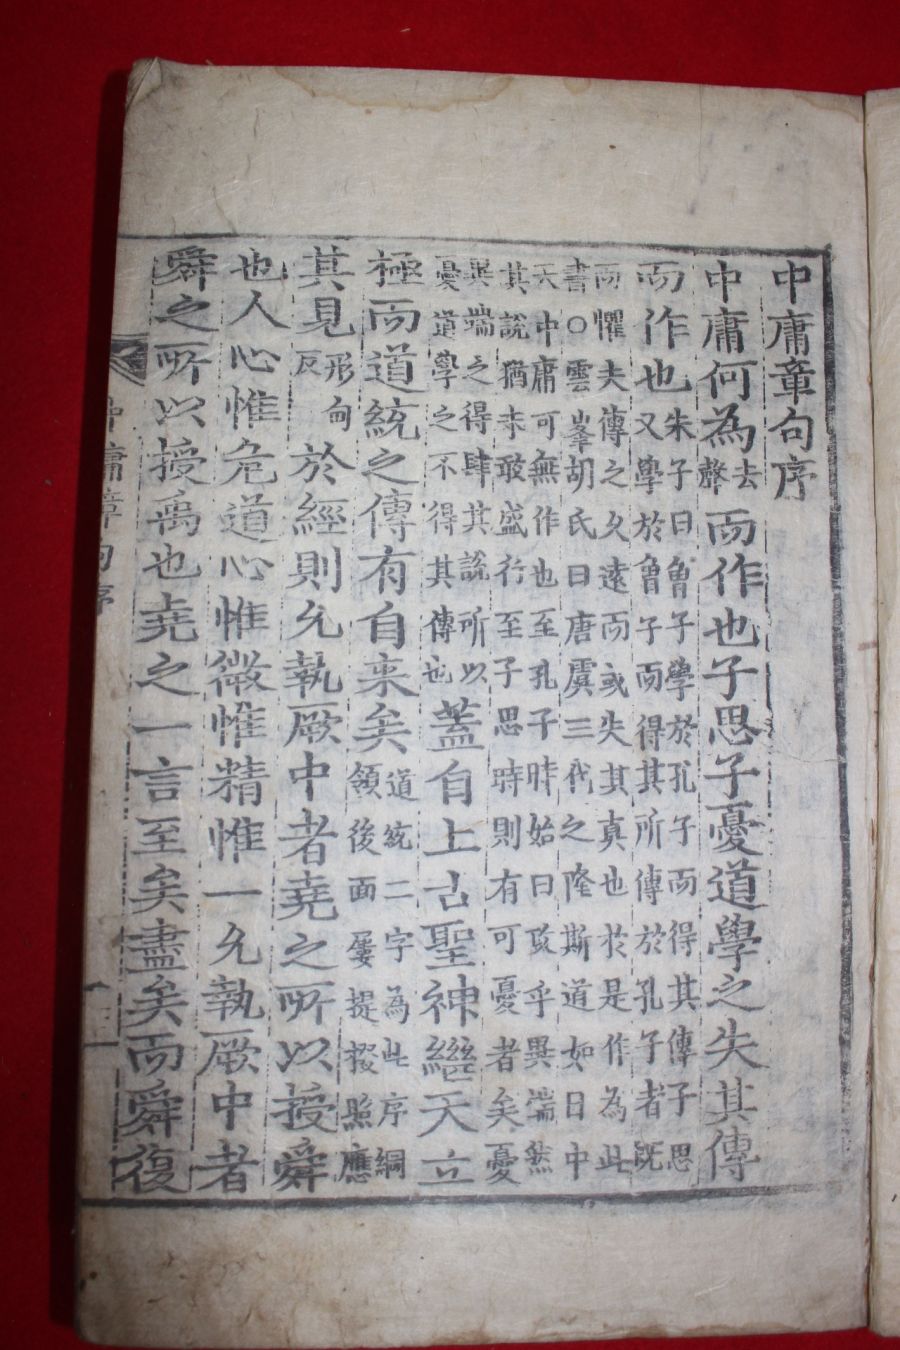 中庸章句序
中庸何為去聲而作也子思子憂道學之失其傳
而作也朱子曰曾子學於孔子而得其傳子思
又學於曾子而得其所傳於孔子者既
而懼夫傳之久遠而或失其真也於是作為此
書○雲峯胡氏曰唐虞三代之隆斯道如日中
天中庸可無作也至孔子時始曰攻乎異端然
其說猶未敢盛行至子思時則有可憂者矣憂
異端之得肆其說所以
憂道學之不得其傳也蓋自上古聖神繼天立
極而道統之傳有自来矣道統二字為此序綱
領後面屢提掇照應
其見形甸反於經則允執厥中者堯之所以授舜
也人心惟危道心惟微惟精惟一允執厥中者
舜之所以授禹也堯之一言至矣盡矣而舜復
中庸章句序
一